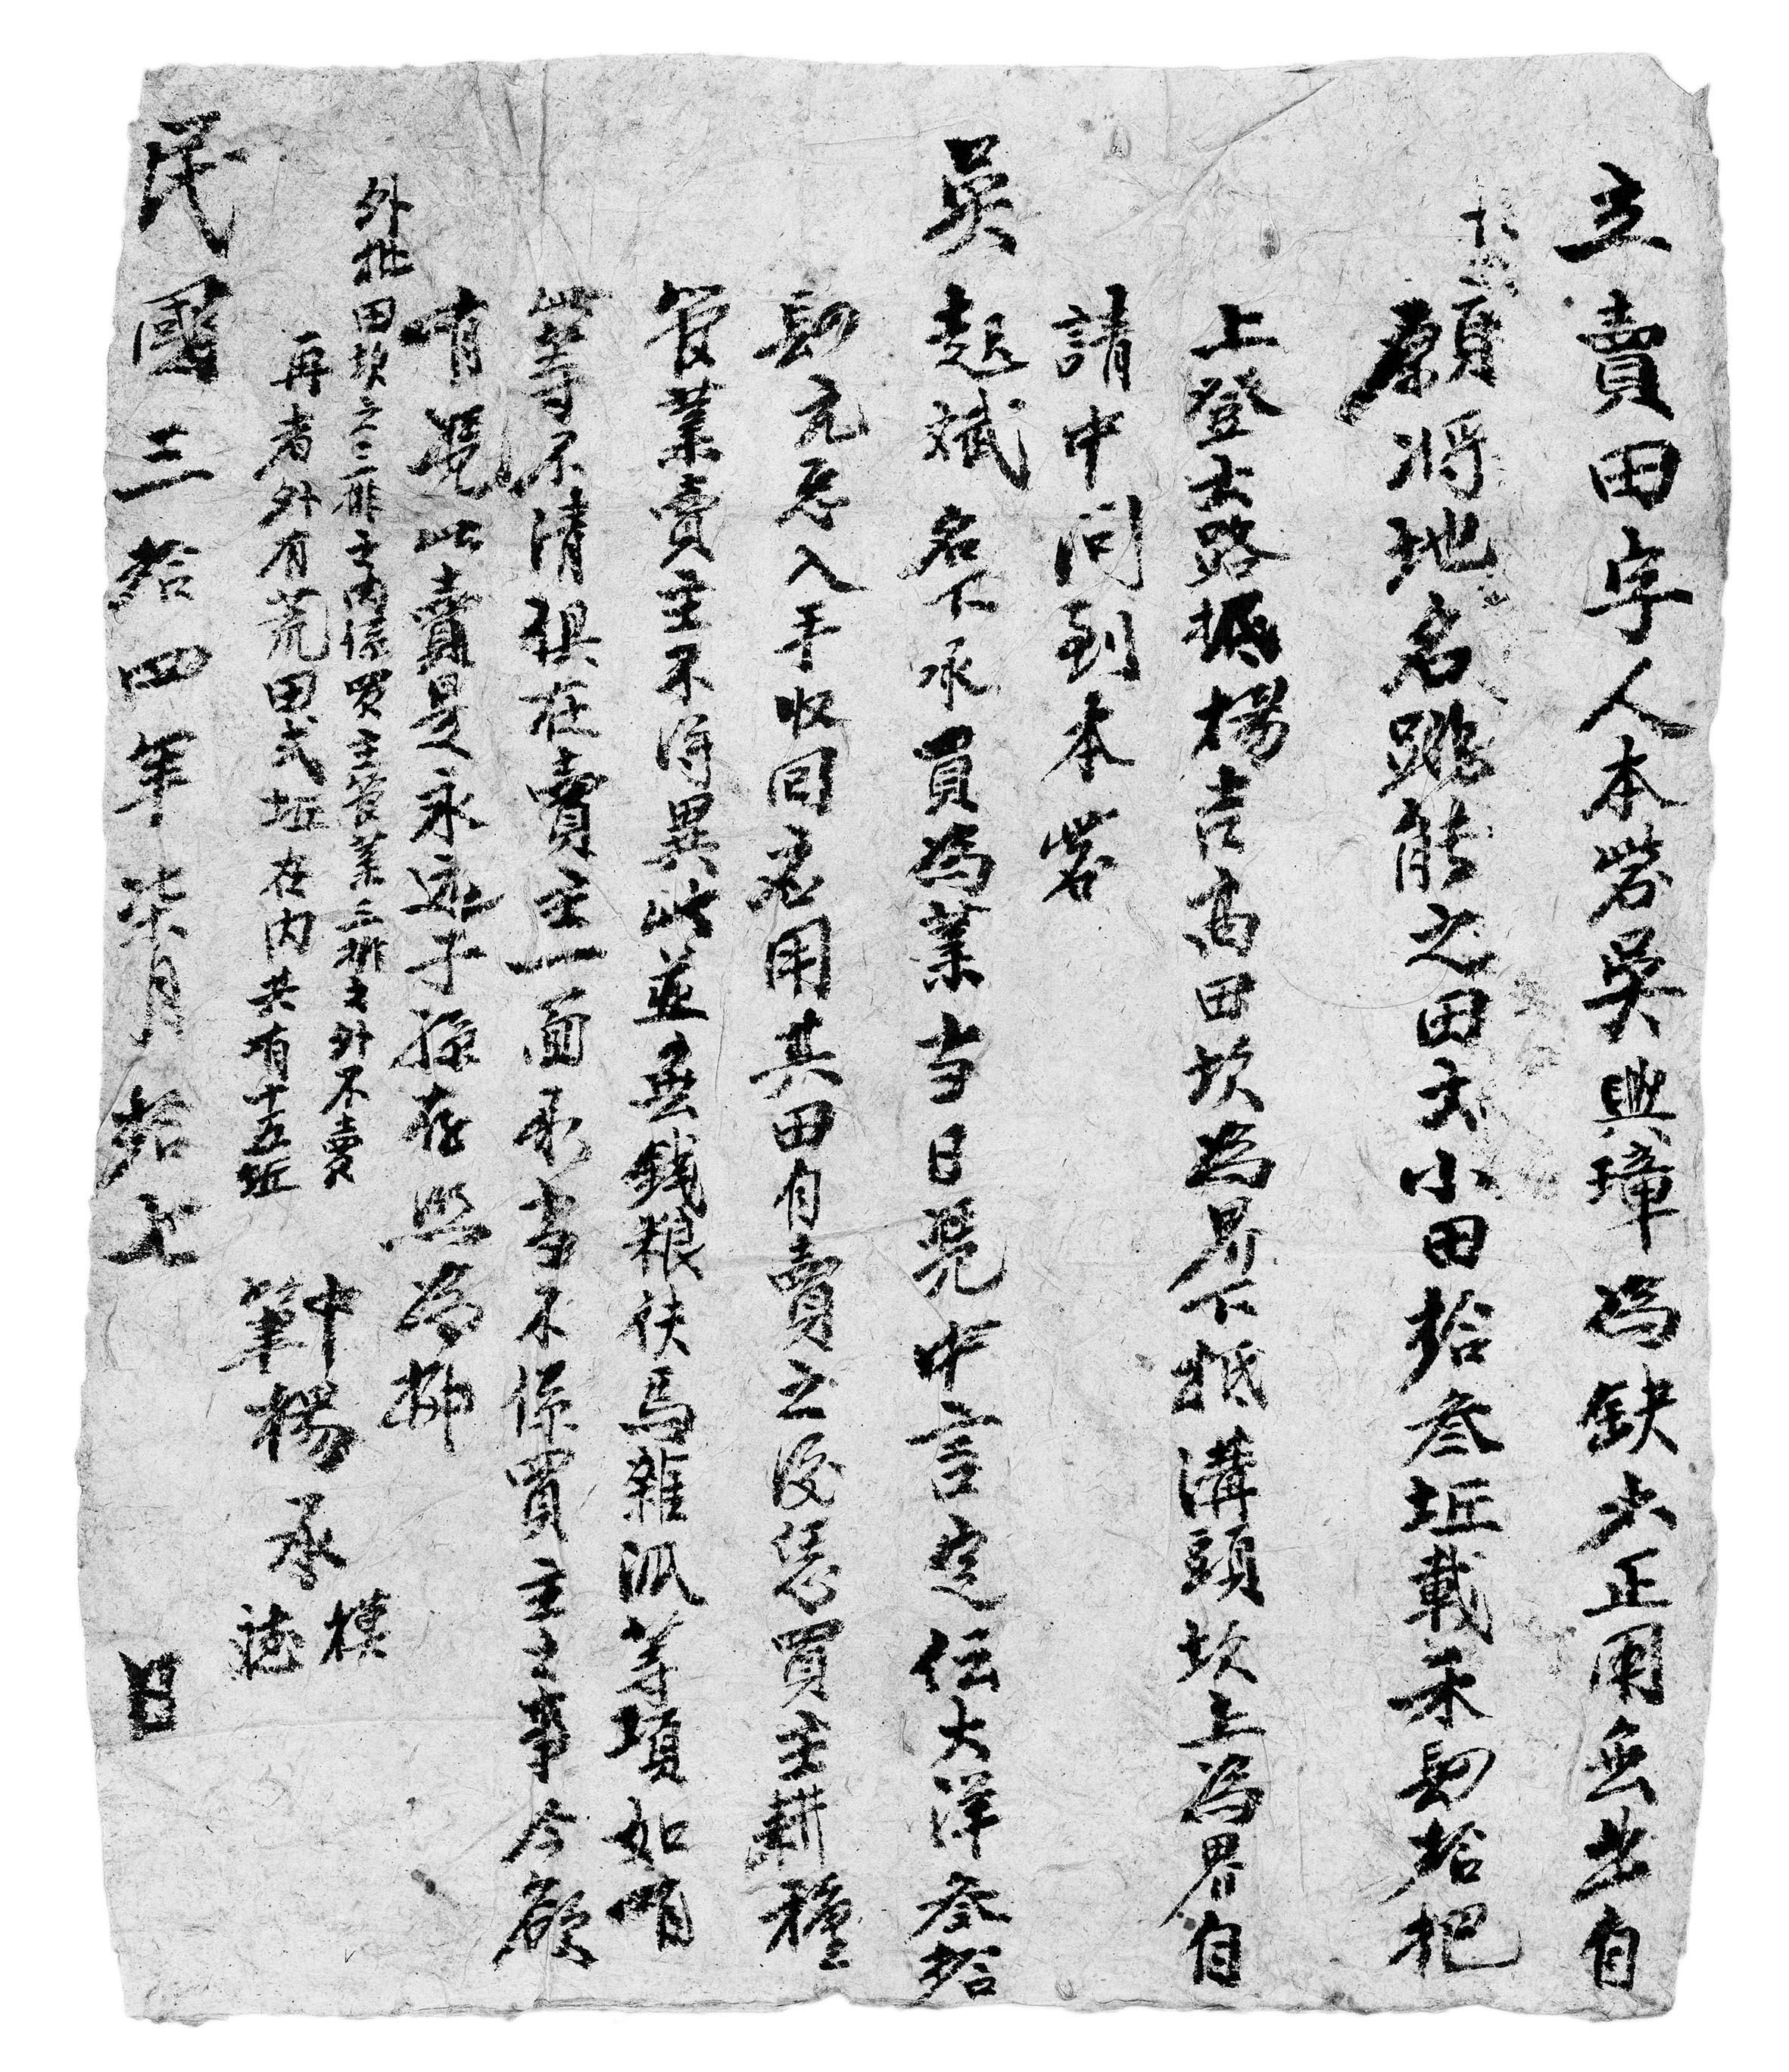 立賣田字人本砦吳興璋為缺少正用無出自
願將地名跳能之田大小田拾叁坵載禾四拾把
上登大路抵楊吉高田坎為界下抵溝頭坎上為界自
請中問到本砦
吳起斌名下承買為業当日凭中言定伝大洋叁拾
四元忢入手收回应用其田自賣之後恁買主耕種
管業賣主不得異此並無錢粮伕馬雜派等項如有
此等不清俱在賣主一面承当不係買主之事今欲
有凭此賣是永远子孫存照為柳
外批田坎六三排之內係買主管業三排之外不賣
再者外有荒田弍坵在內共有十五坵
中 筆 楊承 模 誌
民國三拾四年柒月拾七 日